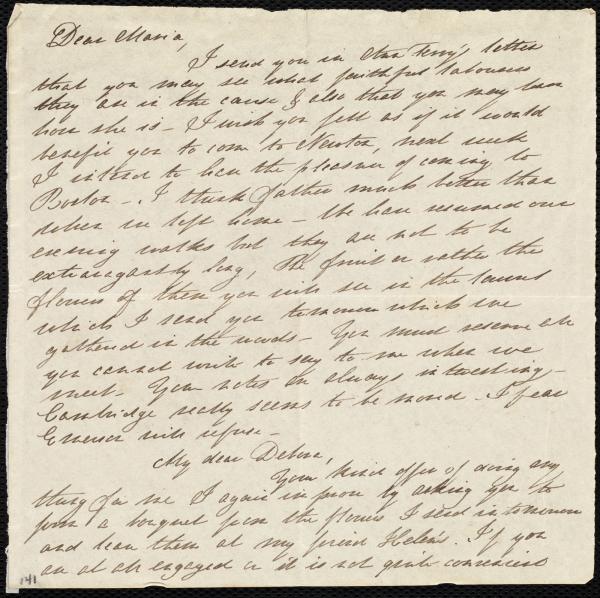 Dear Maria,
I send you in Ann Terry's letter
that you may see what faithful labourers
they are in the cause & also that you may learn
how she is - I wish you felt as if it would
benefit you to come to Newton, next week
I intend to have the pleasure of coming to
Boston -. I think father much better than
when we left home - We have resumed our
evening walks but they are not to be
extravagantly long, The fruit or rather the
flowers of them you will see in the
which I send you tomorrow which we
gathered in the woods - You must reserve all
you cannot write to say to me when we
meet. Your notes are always interesting -
Cambridge really seems to be moved. I fear
Emerson will refuse -
My dear Debora,
Your kind offer of doing any
thing for me I again improve by asking you to
form a bouquet from the flowers I send in tomorrow
and leave them at my friend Helen's. If you
are at all engaged or it is not quite convenient
141